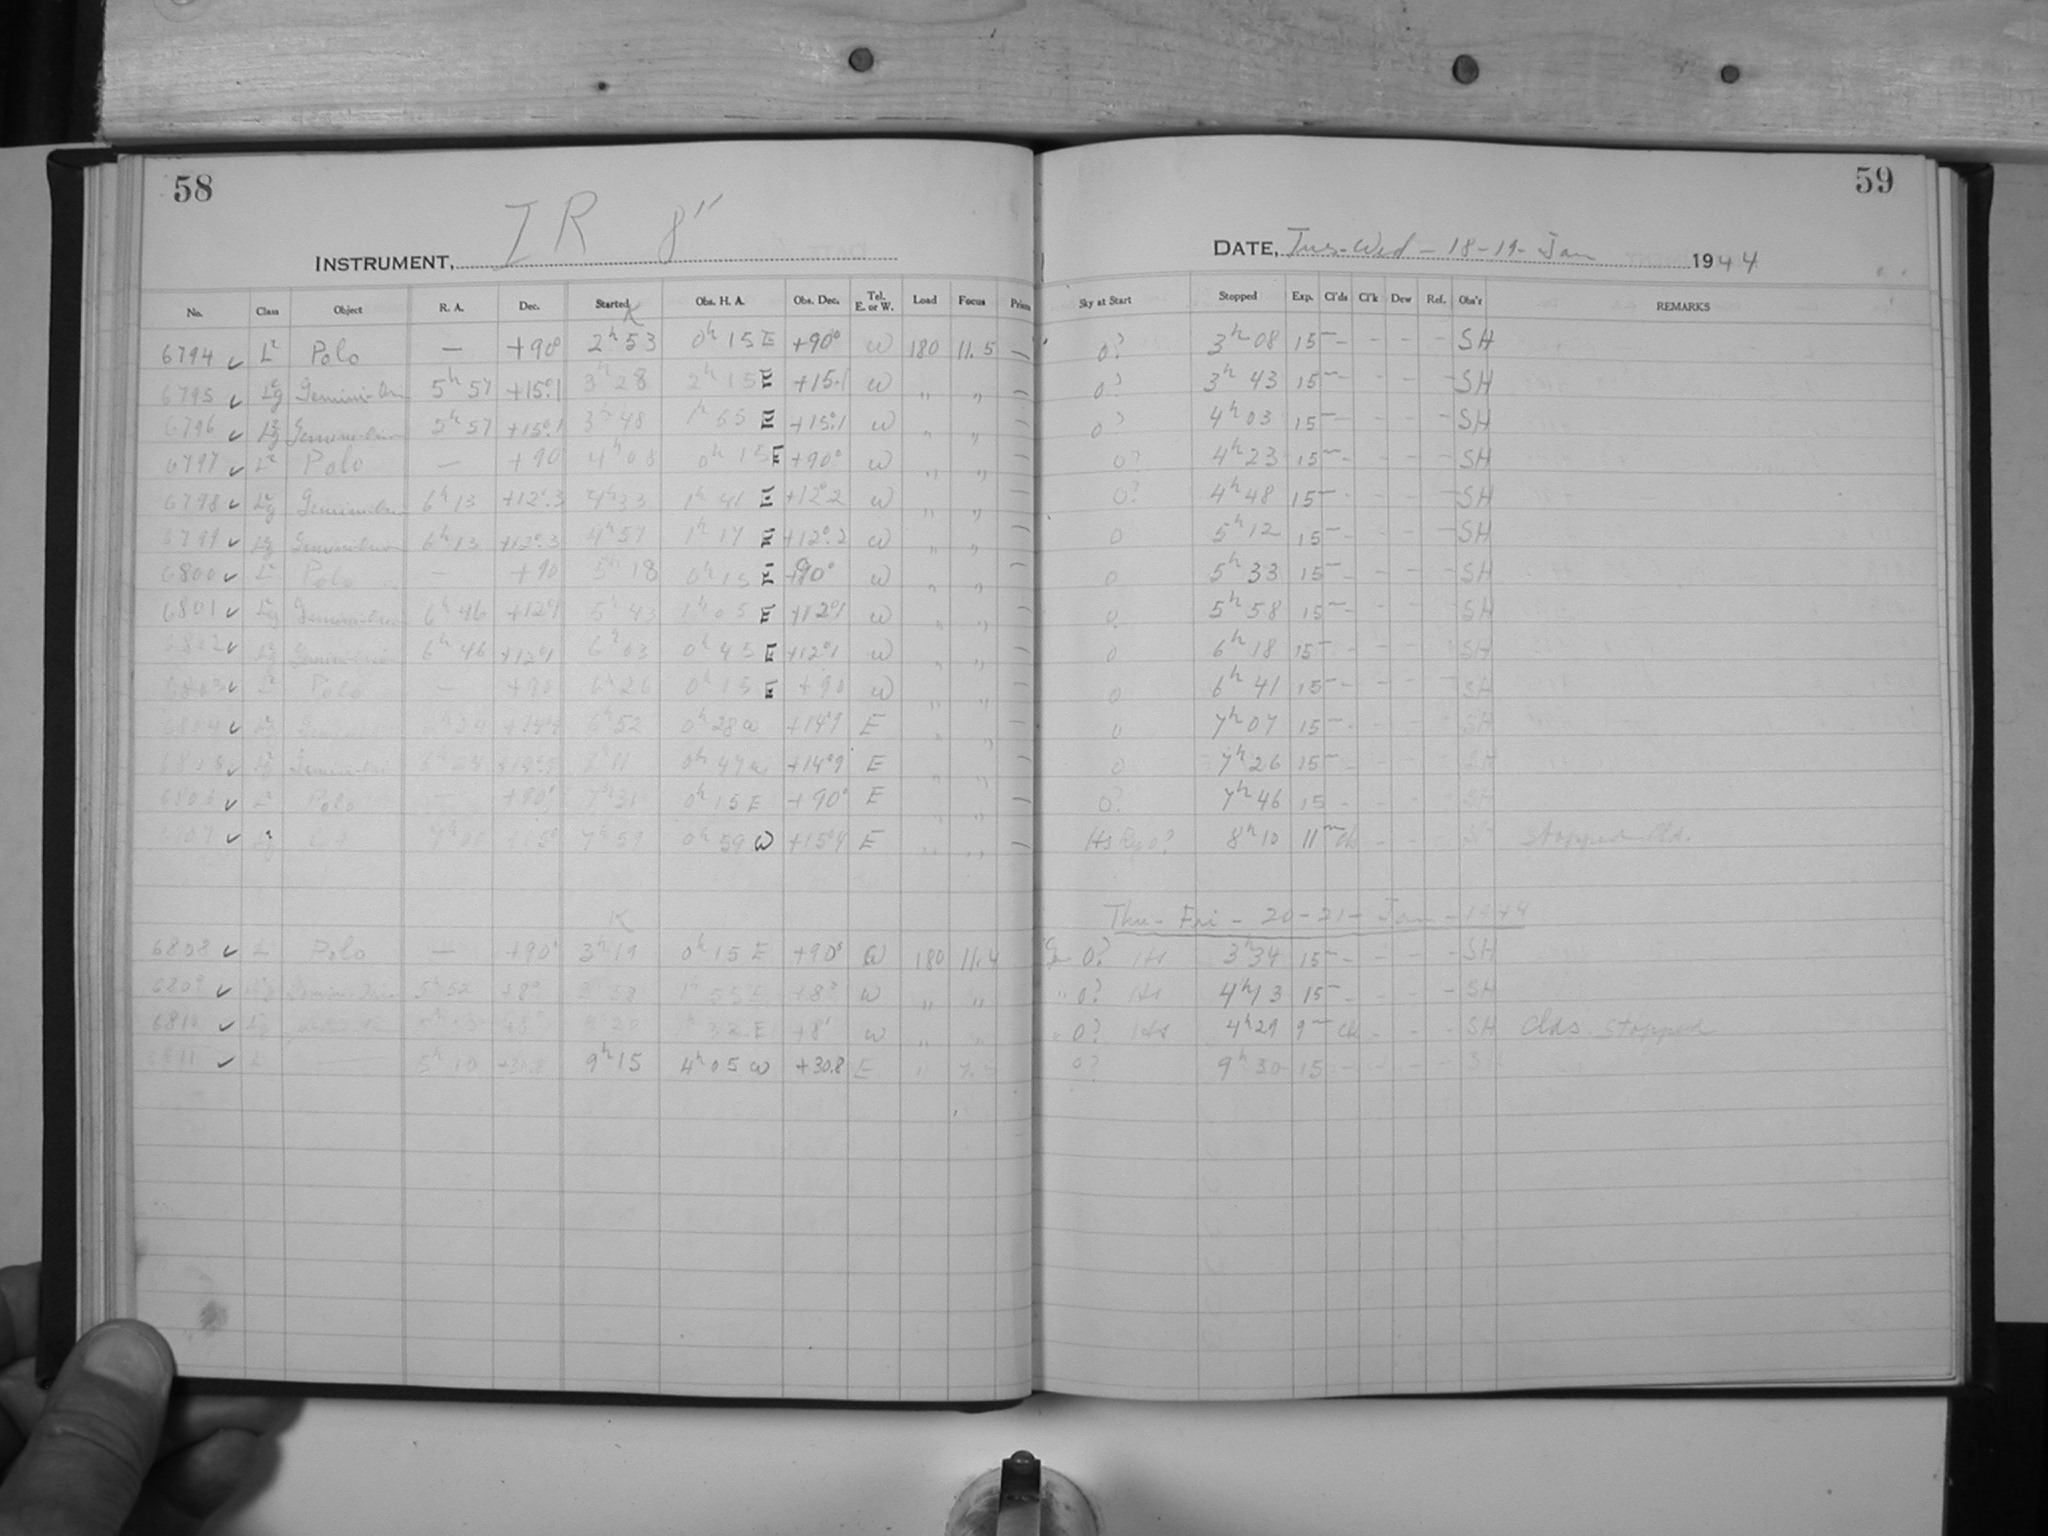 58
59
INSTRUMENT, IR 8"
DATE, Tues-Wed-18-19-Jan 1944
No. Class Object R. A. Dec. Started Obs. H. A. Obs. Dec. Tel. E. or W. Load Focus Prism Sky at Start Stopped Exp. Cl'ds Cl'k Dew Ref. Obs'r REMARKS
K
6794 ✓ L² Polo — +90° 2h 53 0h 15 E +90° W 180 11.5 — 0? 3h 08 15 — - - - - SH
6795 ✓ Gemini-Ori 5h 57 +15°.1 3h 28 2h 15 E +15.1 W " " — 0? 3h 43 15 — - - - - SH
6796 ✓ 5h 57 +15°.1 3h 48 1h 55 E +15°.1 W " " — 0? 4h 03 15 — - - - SH
6797 ✓ L² Polo — +90 4h 08 0h 15 E +90° W " " — 0? 4h 23 15 — - - - - SH
6798 ✓ 6h 13 +12°.3 4h 33 1h 41 E +12°2 W " " — 0? 4h 48 15 — - - - - SH
6799 ✓ 6h 13 +12°.3 4h 57 1h 17 E +12°.2 W " " — 0 5h 12 15 — - - - - SH
6800 ✓ L² Polo — +90 5h 18 0h 15 E +90° W " " — 0 5h 33 15 — - - - - SH
6801 ✓ 6h 46 +12°1 5h 43 1h 05 E +12°1 W " " — 0 5h 58 15 — - - - - SH
6802 ✓ 6h 46 +12°1 6h 03 0h 45 E +12°1 W " " — 0 6h 18 15 — - - - SH
6803 ✓ L² Polo — +90 6h 26 0h 15 E +90 W " " — 0 6h 41 15 — - - - SH
6804 ✓ 6h 52 0h 28 W +14°9 E " " — 0 7h 07 15 — - - - SH
6805 ✓ 7h 11 0h 47 W +14°9 E " " — 0 7h 26 15 — - - - SH
6806 ✓ L² Polo — +90° 7h 31 0h 15 E +90° E " " — 0? 7h 46 15 - - - SH
6807 ✓ 7h 59 0h 59 W +15°4 E " " — 8h 10 11m Cl - - - SH Stopped Clds.
K
Thu-Fri-20-21-Jan-1944
6808 ✓ L² Polo — +90° 3h 19 0h 15 E +90° W 180 11.4 0? Hs 3h 34 15 — - - - - SH
6809 ✓ 5h 52 +8° 3h 58 1h 55 E +8° W " " " 0? Hs 4h 13 15 — - - - - SH
6810 ✓ E +8° W " " " 0? Hs 4h 29 9m Cl - - - SH Clds. Stopped
6811 ✓ L 5h 10 +30.8 9h 15 4h 05 W +30.8 E " 0? 9h 30 15 — - - - SH